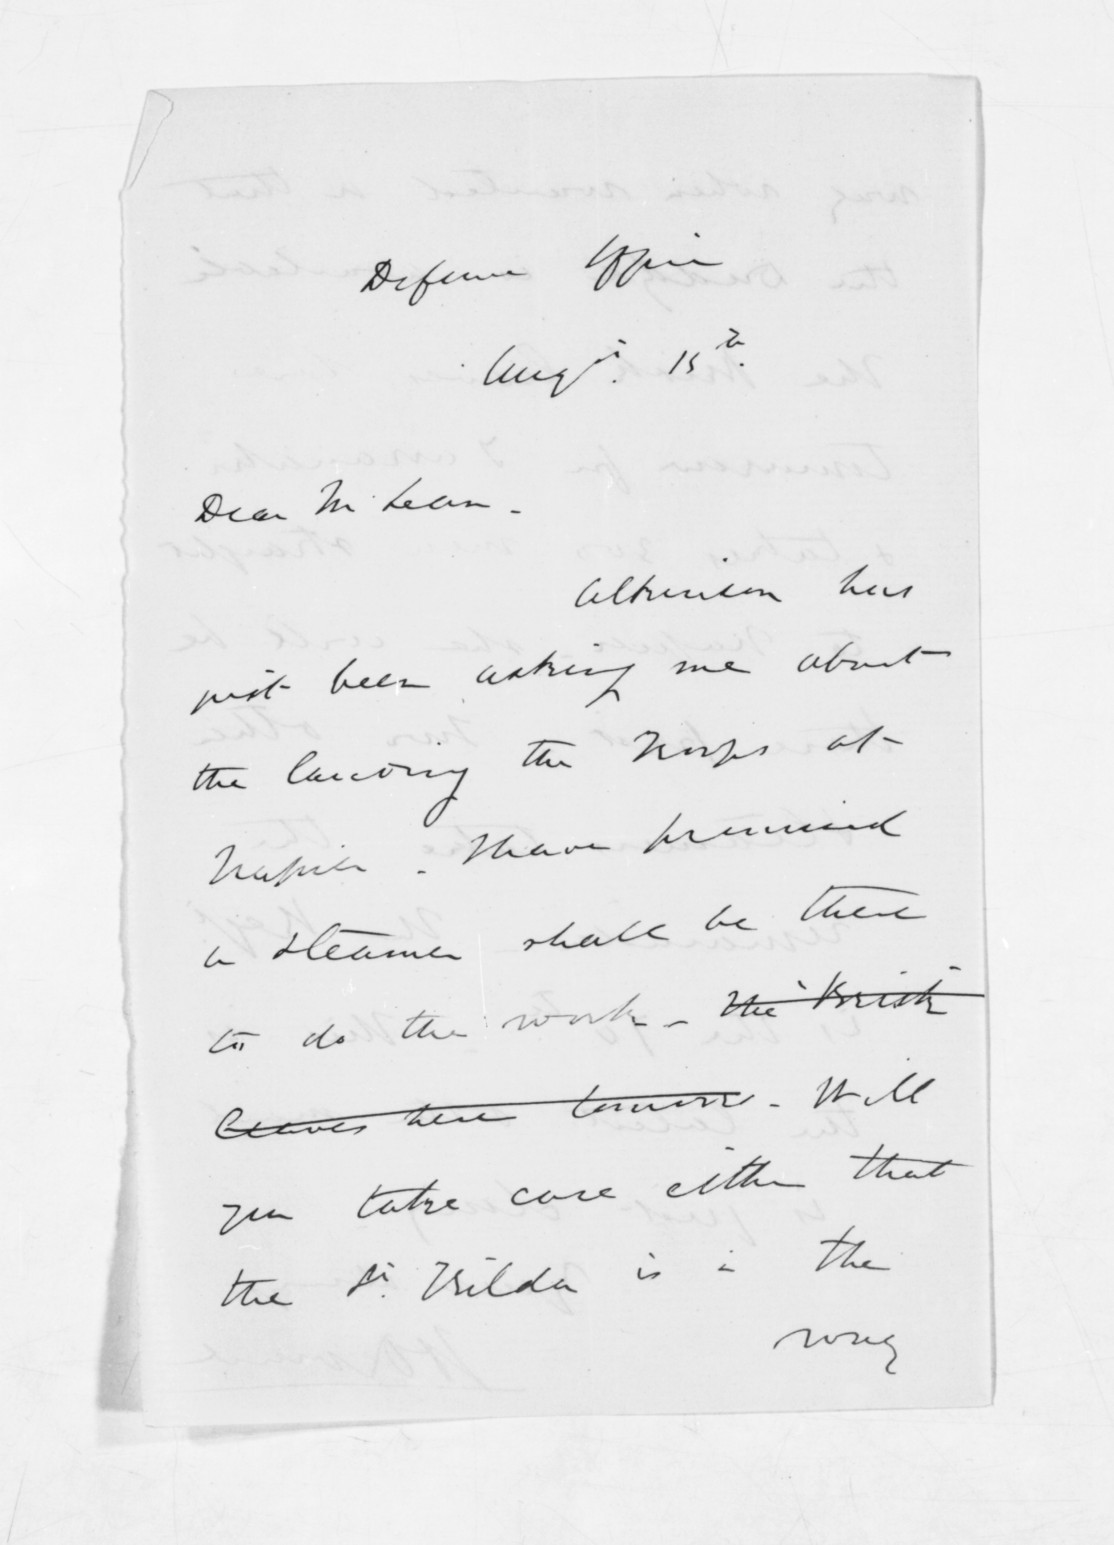 Defence Office
Augst. 15th.
Dear McLean -
Atkinson has
just been asking me about
the landing the troops at
Napier - I have promised
a steamer shall be there
to do the work - The "Brisk"
leaves here tomorrow - Will
you take care either that
the St. Kilda is in the
way